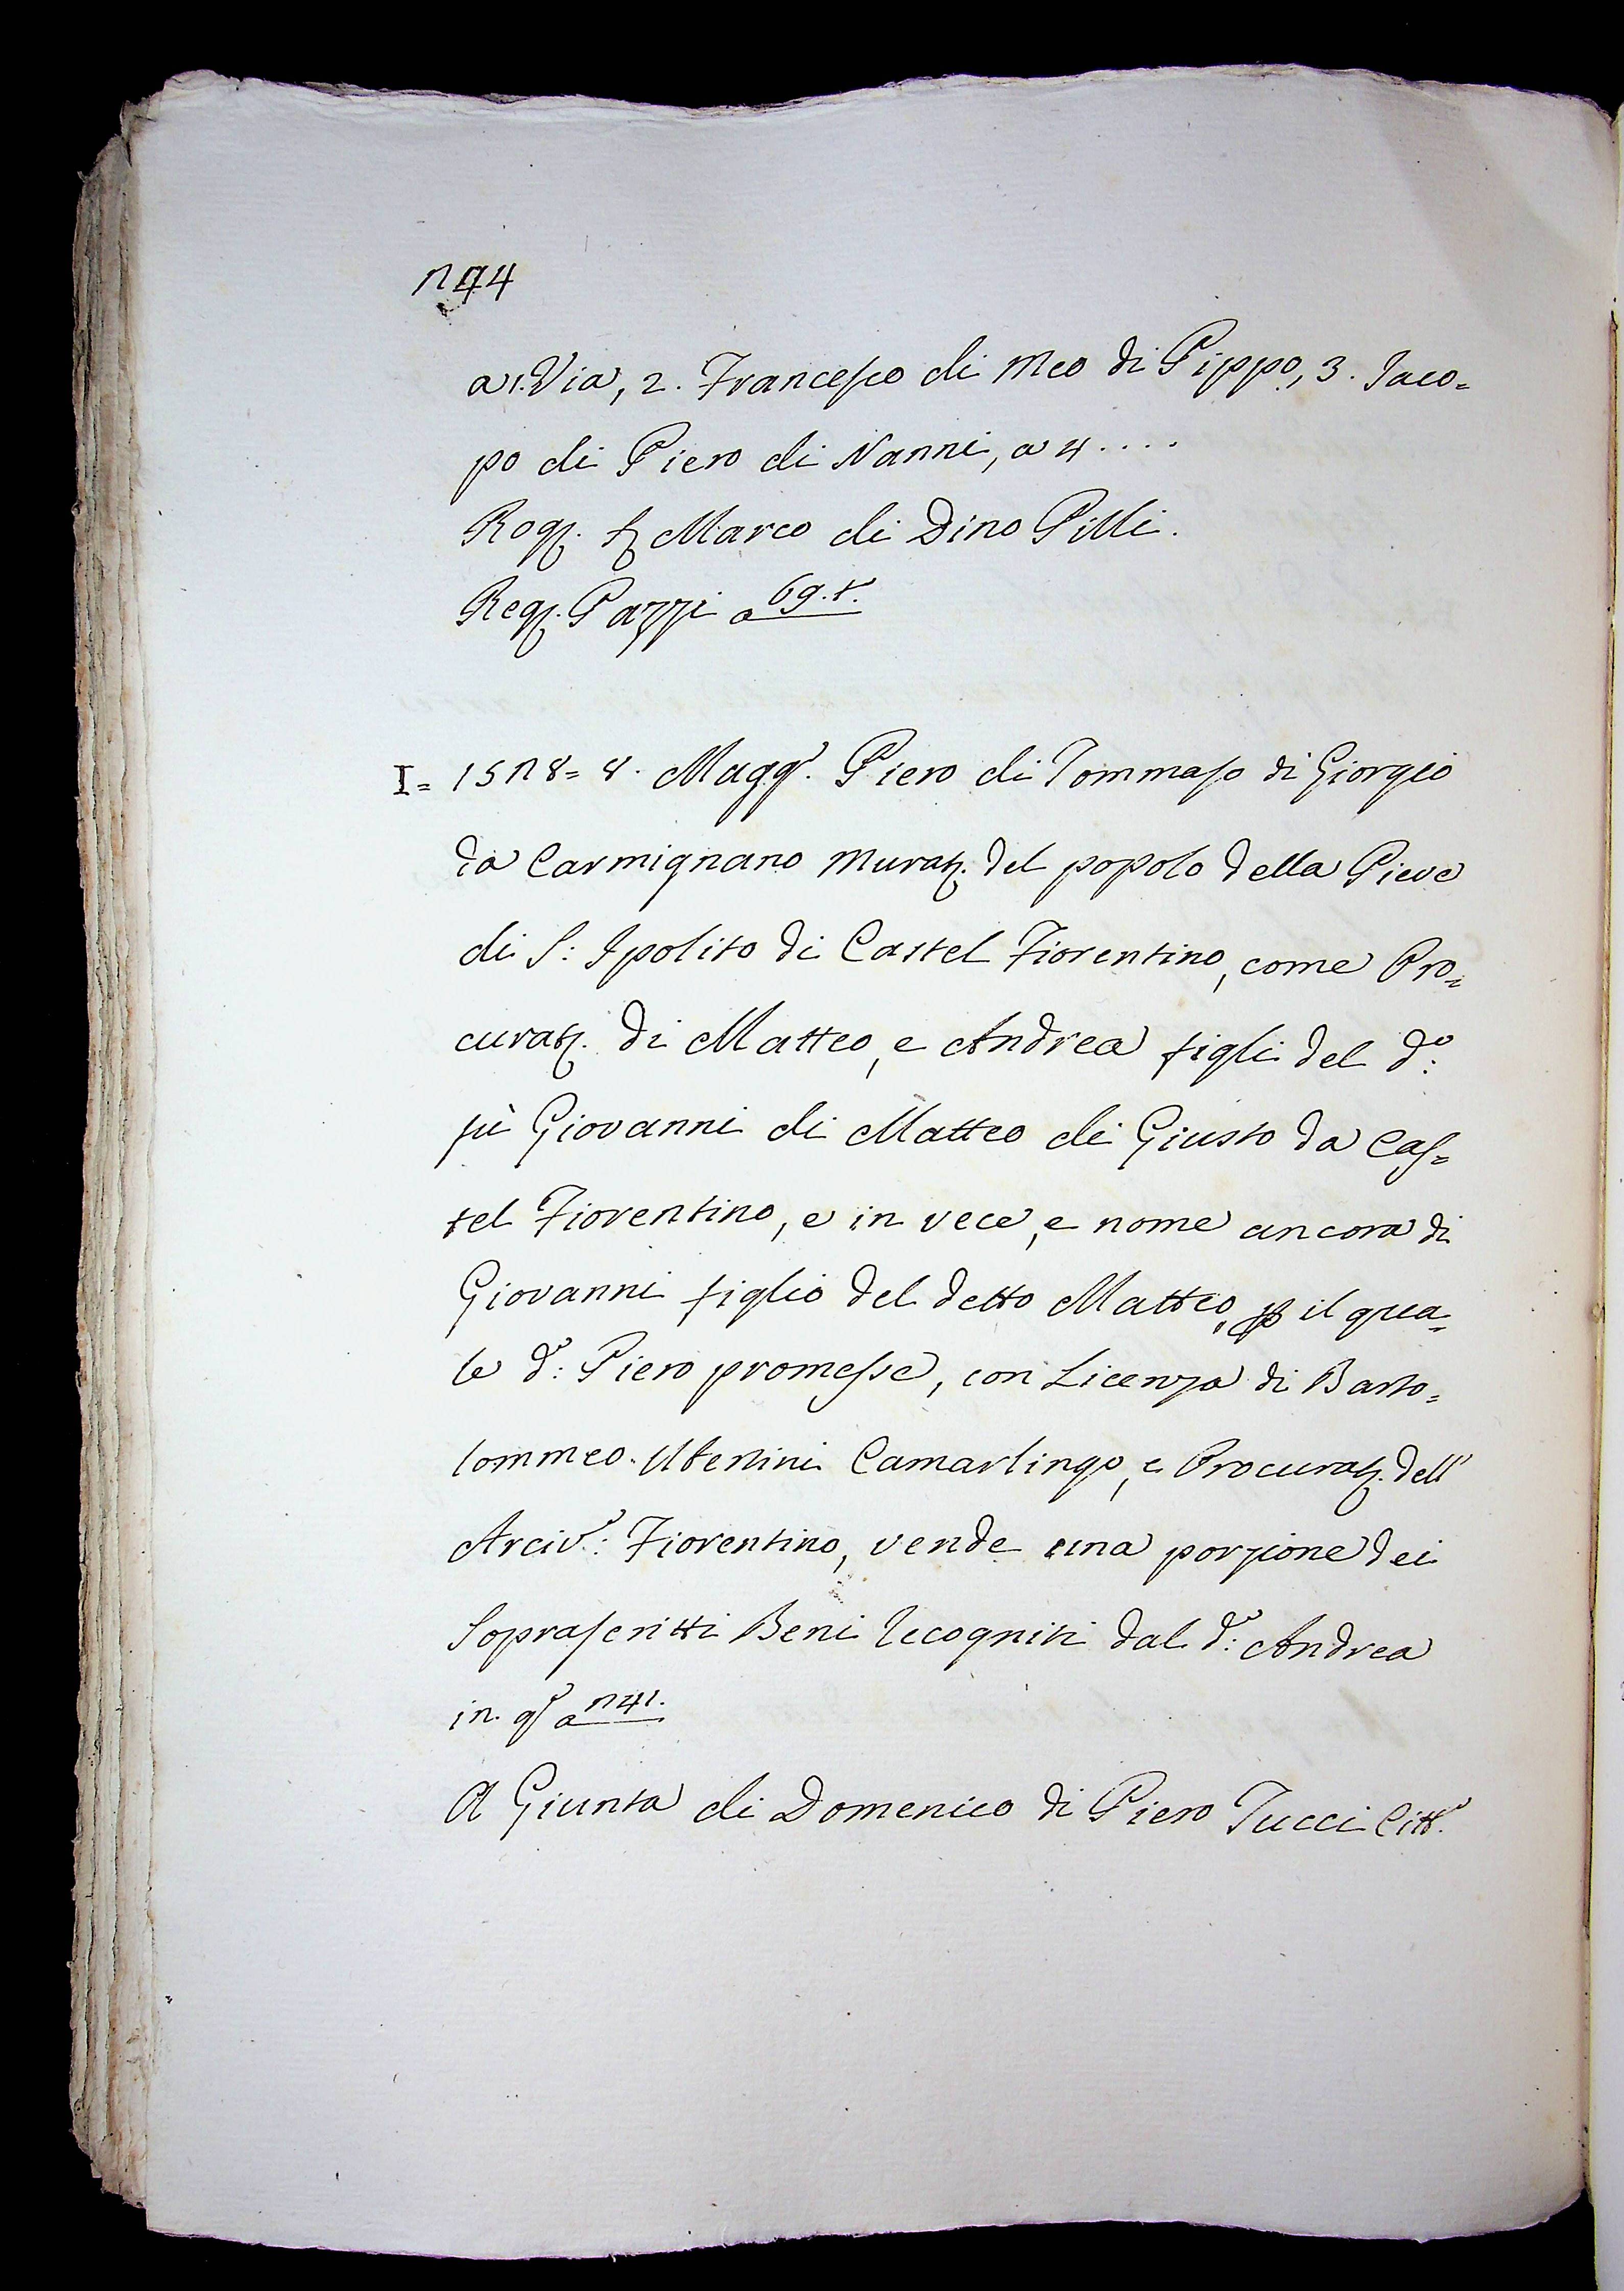 744
a 1. Via, 2. Francesco di Meo di Pippo, 3. Jaco=
po di Piero di Nanni, a 4....
Rog. Marco di Dino Pilli.
Reg. Pazzi a 69.t.
I= 1578= 8. Magg.o Piero di Tommaso di Giorgio
da Carmignano Murat. del popolo della Pieve
di S: Ipolito di Castel Fiorentino, come Pro=
curat. di Matteo, e Andrea figli del d.o:
fù Giovanni di Matteo di Giusto da Cas=
tel Fiorentino, e in vece, e nome ancora di
Giovanni figlio del detto Matteo, p il qua=
le d.o: Piero promesse, con Licenza di Barto=
lommeo Ubertini Camarlingo, e Procurat. dell'
Arciv.o: Fiorentino, vende una porzione dei
Soprascritti Beni recogniti dal d.o: Andrea
in q.o a 741.
A Giunta di Domenico di Piero Tucci Citt.o